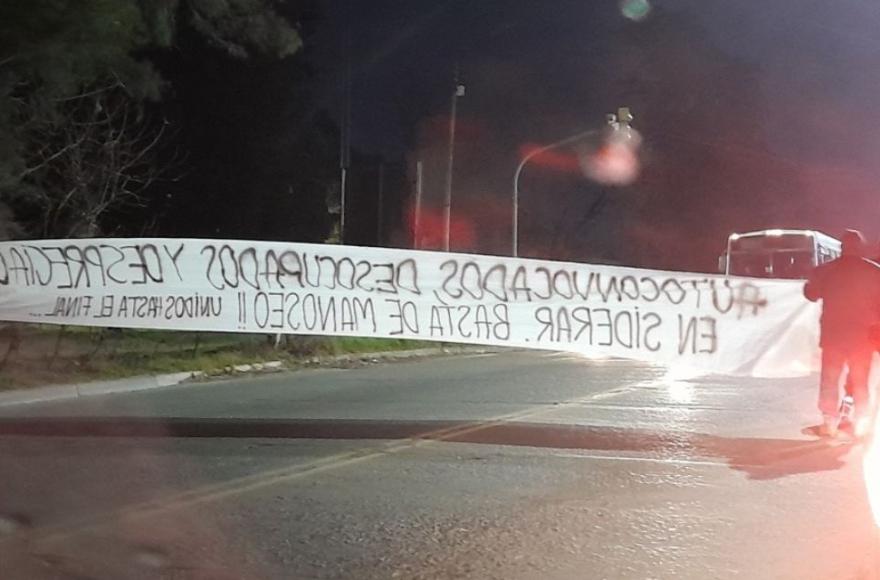 AUTOCONVOCADOS, DESOCUPADOS Y DESPRECIADO
EN SIDERAR. BASTA DE MANOSEO!! UNIDOS HASTA EL FINAL...